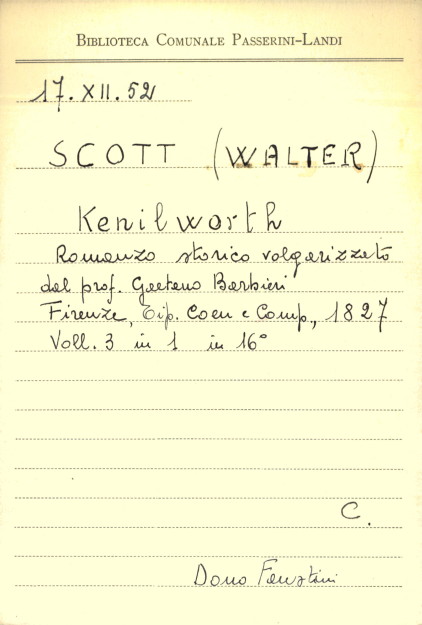 BIBLIOTECA COMUNALE PASSERINI-LANDI
17. XII. 52
SCOTT (WALTER)
Kenilworth
Romanzo storico volgarizzato
dal prof. Gaetano Barbieri
Firenze, Tip. Coen e Comp., 1827
Voll. 3 in 1 in 16°
C.
Dono